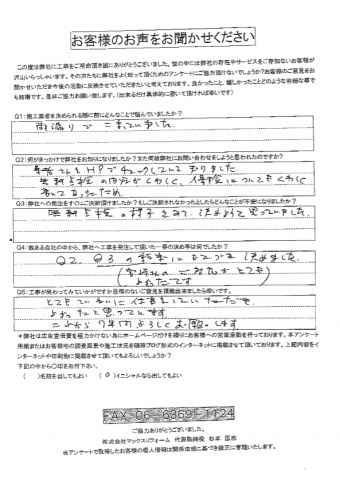 お客様のお声をお聞かせください
この度は弊社に工事をご用命頂き誠にありがとうございました。世の中には弊社の存在やサービスをご存知ないお客様が
沢山いらっしゃいます。その方たちに弊社をよく知って頂くためのアンケートにご協力頂けないでしょうか?お客様のご意見をお
聞かせいただき今後の活動に反映させていただきたいと考えております。良かったこと、嬉しかったことのような些細な事で
も結構です。是非ご協力お願い致します。(出来るだけ具体的に書いて頂ければ幸いです)
Q1:施工業者を決められる際に前にどんなことで悩んでいましたか?
雨漏りで こまっていました。
Q2:何がきっかけで弊社をお知りになりましたか?また何故弊社にお問い合わせをしようと思われたのですか?
業者さんをHPでチェックしていて知りました。
無料点検の内容がくわしく、保険についてもくわしく
書いてあったため
Q3:弊社への発注をすぐにご決断頂けましたか?もしご決断されなかったとしたらどんなことが不安になりましたか?
無料点検の様子をみて、決めようと思っていました。
Q4:数ある会社の中から、弊社へ工事を発注して頂いた一番の決め手は何でしたか?
Q2、Q3の結果にもとづき決めました。
Q5:工事が終わってみていかがですか忌憚のないご意見を頂戴出来ましたら幸いです。
とてもていねいに仕事をしていただいて
よかったと思っています。
*弊社は広告宣伝費を極力かけない為にホームページだけを頼りにお客様への営業活動を行っております。本アンケート
用紙またはお客様宅の調査風景や施工状況を随時ブログ形式のインターネットに掲載させて頂いております。上記内容をイ
ンターネットや印刷物に掲載させて頂いてもよろしいでしょうか?
下記の中から○印をお付け下さい。
( )名前を出してもよい (○)イニシャルなら出してもよい
FAX 06-6369-1124
ご協力ありがとうございました。
株式会社マックスリフォーム 代表取締役
※アンケートで取得したお客様の個人情報は関係法規に基づき厳正に管理いたします。